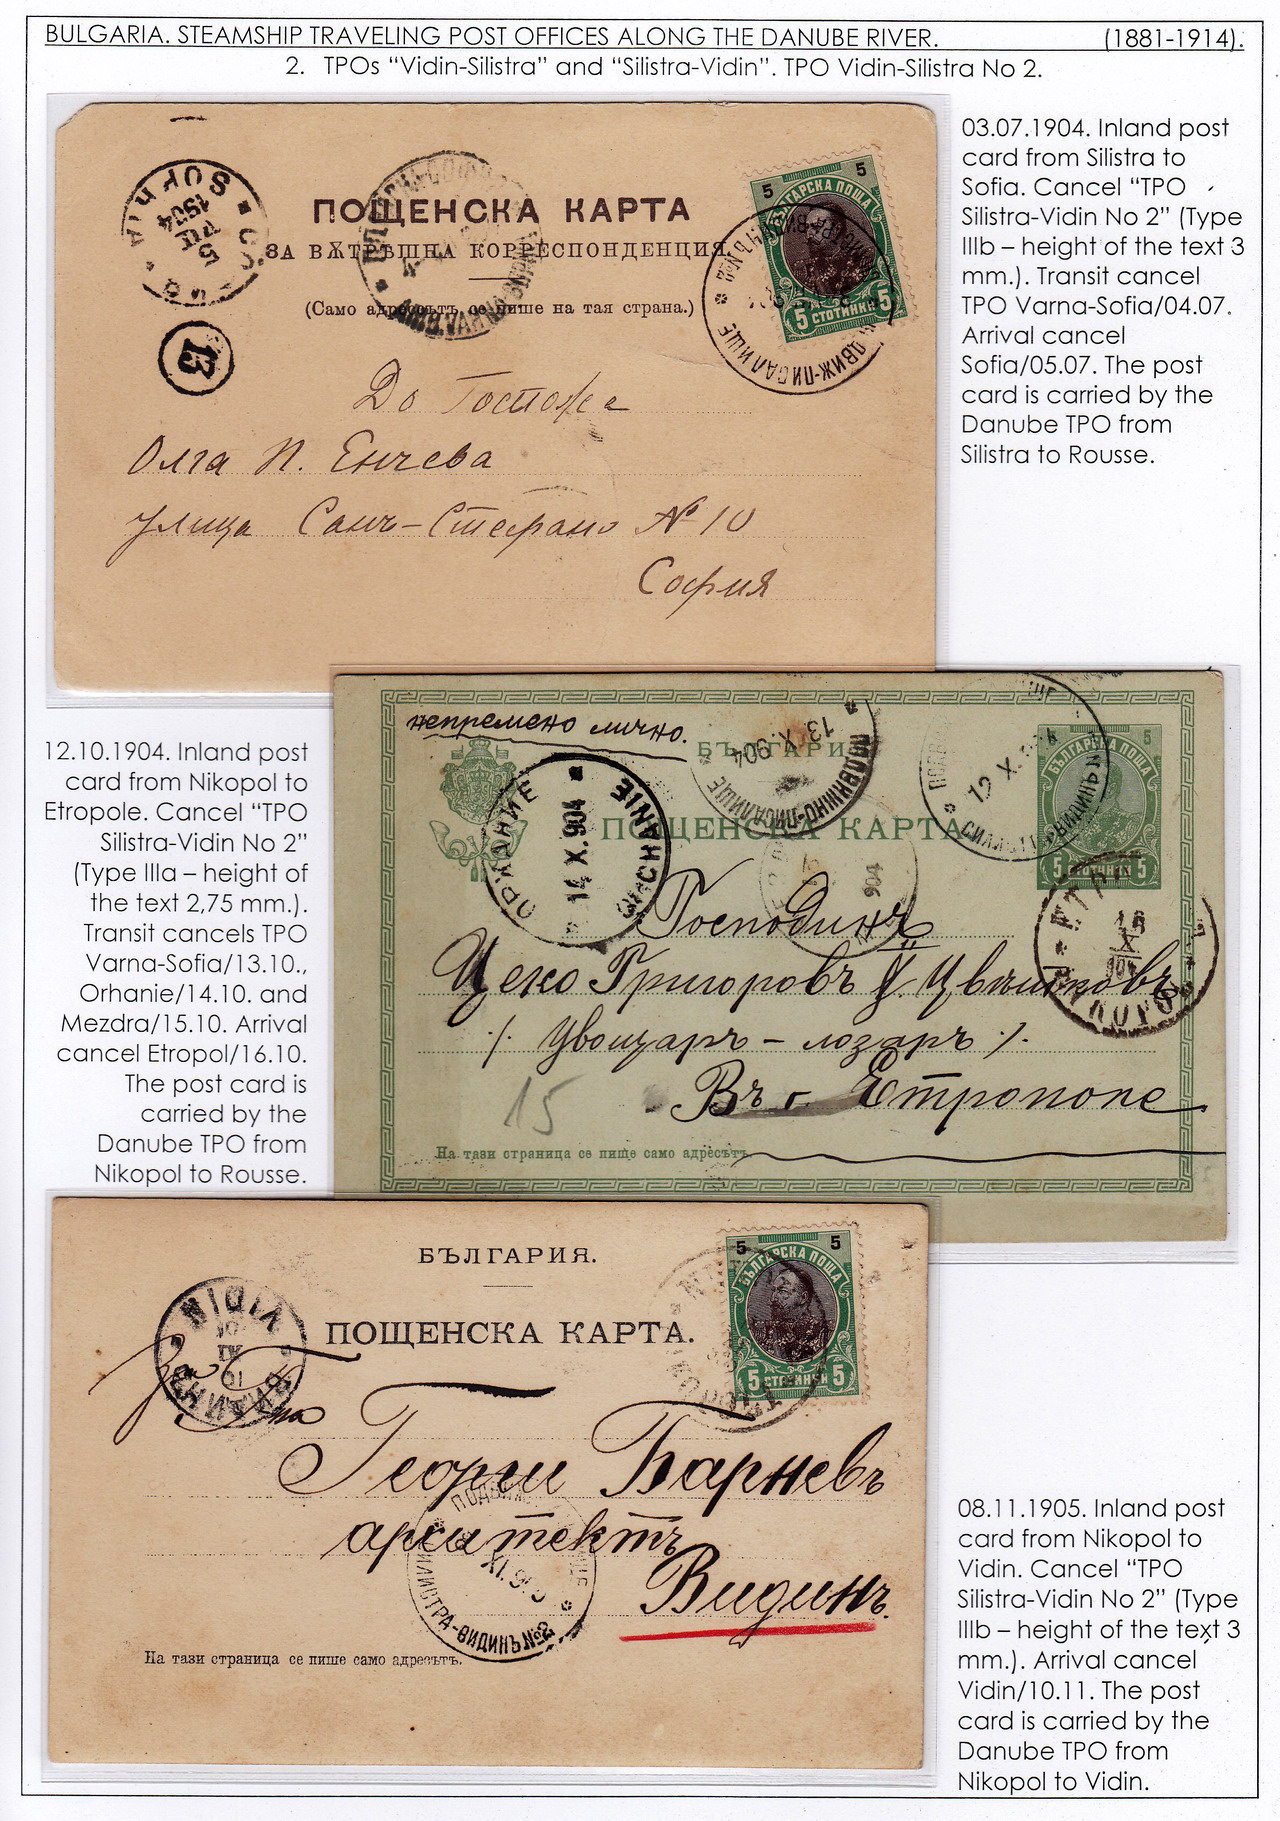 BULGARIA. STEAMSHIP TRAVELING POST OFFICES ALONG THE DANUBE RIVER. (1881-1914).
2. TPOs “Vidin-Silistra” and “Silistra-Vidin”. TPO Vidin-Silistra No 2.
03.07.1904. Inland post
card from Silistra to
Sofia. Cancel “TPO
Silistra-Vidin No 2” (Type
IIIb – height of the text 3
mm.). Transit cancel
TPO Varna-Sofia/04.07.
Arrival cancel
Sofia/05.07. The post
card is carried by the
Danube TPO from
Silistra to Rousse.
5 5
БЪЛГАРСКА ПОЩА
5 СТОТИНКИ 5
ДВИЖ-ПИСАЛИЩЕ
SOPHIA
5
1904
ПОЩЕНСКА КАРТА
ЗА ВѪТРѢШНА КОРРЕСПОНДЕНЦИЯ.
(Само адресътъ се пише на тая страна.)
13
До Госпожа
Олга П. Енчева
улица Санъ-Стефано № 10
София
12.10.1904. Inland post
card from Nikopol to
Etropole. Cancel “TPO
Silistra-Vidin No 2”
(Type IIIa – height of
the text 2,75 mm.).
Transit cancels TPO
Varna-Sofia/13.10.,
Orhanie/14.10. and
Mezdra/15.10. Arrival
cancel Etropol/16.10.
The post card is
carried by the
Danube TPO from
Nikopol to Rousse.
непремено лично.
БЪЛГАРИЯ
ПОЩЕНСКА КАРТА
13 X. 904
12 X.
БЪЛГАРСКА ПОЩА
5
5 СТОТИНКИ 5
ОРХАНИЕ
14 X. 904
ORCHANIE
904
16
X
904
Господинъ
Цеко Григоровъ Цвѣтковъ
/. Цвощаръ – лозаръ /.
Въ г. Етрополе
15
На тази страница се пише само адресътъ.
БЪЛГАРИЯ.
ПОЩЕНСКА КАРТА.
5 5
БЪЛГАРСКА ПОЩА
5 СТОТИНКИ 5
VIDIN
10
XI
Георги Бърневъ
архитектъ
Видинъ.
СИЛИСТРА-ВИДИНЪ №2
На тази страница се пише само адресътъ.
08.11.1905. Inland post
card from Nikopol to
Vidin. Cancel “TPO
Silistra-Vidin No 2” (Type
IIIb – height of the text 3
mm.). Arrival cancel
Vidin/10.11. The post
card is carried by the
Danube TPO from
Nikopol to Vidin.